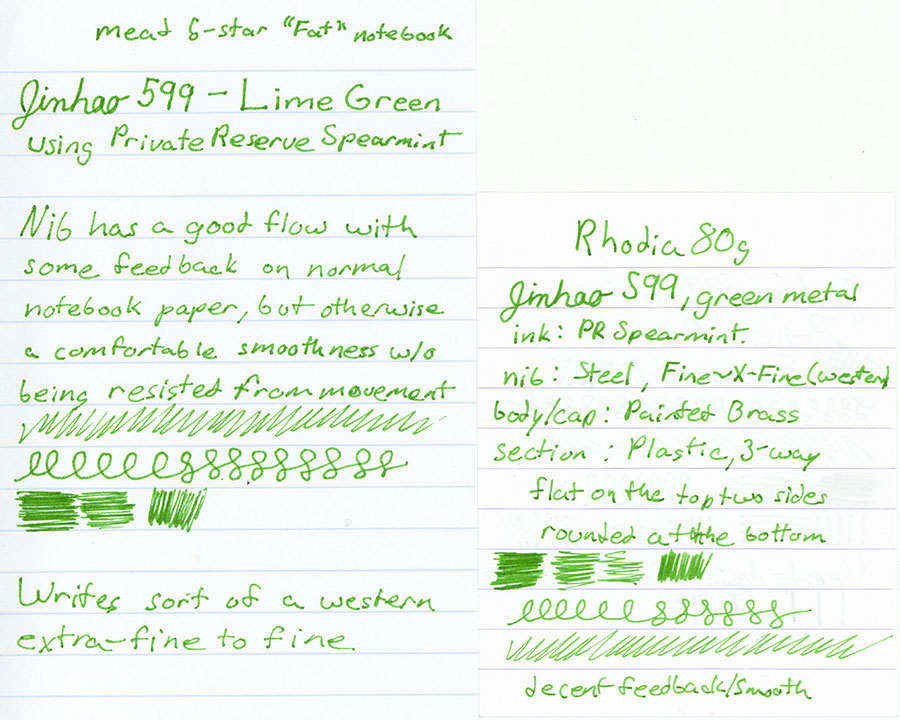 mead 5-star "Fat" notebook
Jinhao 599 - Lime Green
using Private Reserve Spearmint
Nib has a good flow with
some feedback on normal
notebook paper, but otherwise
a comfortable smoothness w/o
being resisted from movement
Writes sort of a western
extra-fine to fine.
Rhodia 80g
Jinhao 599, green metal
ink: PR Spearmint.
nib: Steel, Fine~X-Fine(western)
body/cap: Painted Brass
section: Plastic, 3-way
flat on the top two sides
rounded at the bottom
decent feedback/smooth